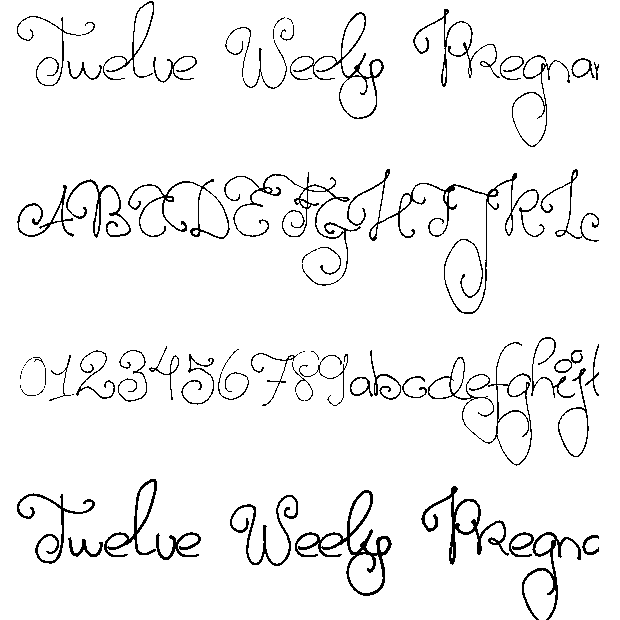 Twelve Weeks Pregna
ABCDEFGHIJKL
0123456789abcdefghij
Twelve Weeks Pregn